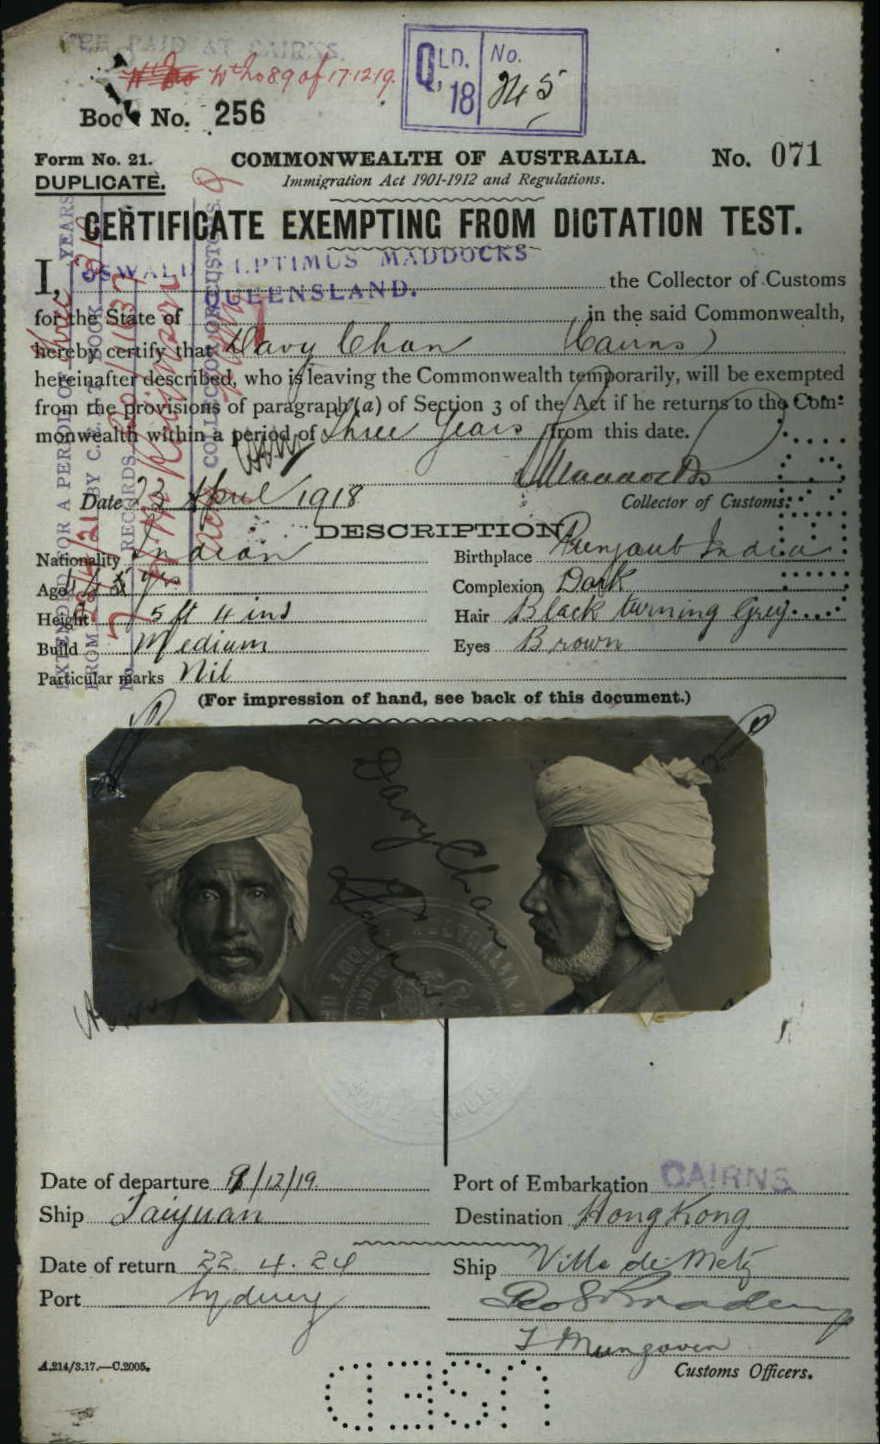 FEE PAID AT CAIRNS.
Wt No 89 of 17.12.19.
QLD. 18 No. 245
Book No. 256
Form No. 21.
COMMONWEALTH OF AUSTRALIA.
No. 071
DUPLICATE.
Immigration Act 1901-1912 and Regulations.
CERTIFICATE EXEMPTING FROM DICTATION TEST.
I, OSWALD SEPTIMUS MADDOCKS the Collector of Customs
for the State of QUEENSLAND. in the said Commonwealth,
hereby certify that Davy Chan (Cairns)
hereinafter described, who is leaving the Commonwealth temporarily, will be exempted
from the provisions of paragraph (a) of Section 3 of the Act if he returns to the Com-
monwealth within a period of Three Years from this date.
Maddocks
Date 23 April 1918
Collector of Customs.
EXTENDED FOR A PERIOD OF three YEARS
FROM BY C. & T. BOOK
No. RECORDS
COLLECTOR OF CUSTOMS
DESCRIPTION
Nationality Indian
Birthplace Punjaub India
Age yrs
Complexion Dark
Height 5 ft 4 ins
Hair Black turning Grey
Build Medium
Eyes Brown
Particular marks Nil
(For impression of hand, see back of this document.)
Davy Chan
Date of departure /12/19
Port of Embarkation CAIRNS
Ship Taiyuan
Destination Hong Kong
Date of return 22. 4. 24
Ship Ville de Metz
Port Sydney
T Mungoven
A.214/3.17.—C.2005.
Customs Officers.
USED